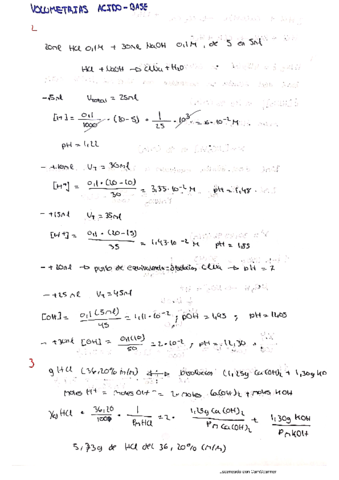 VOLUMETRIAS ACIDO-BASE
1.
20ml HCl 0,1M + 30ml NaOH 0,1M, de 5 en 5ml
HCl + NaOH → ClNa + H₂O
-5ml Vtotal = 25ml
[H⁺] = 0,1/1000 · (20-5) · 1/25 · 10³ = 6·10⁻² M
pH = 1,22
- +10ml VT = 30ml
[H⁺] = 0,1·(20-10)/30 = 3,33·10⁻² M pH = 1,48
- +15ml VT = 35ml
[H⁺] = 0,1·(20-15)/35 = 1,43·10⁻² M pH = 1,85
- +20ml → punto de equivalencia = disolución ClNa → pH = 7
- +25ml VT = 45ml
[OH] = 0,1(5ml)/45 = 1,11·10⁻²; pOH = 1,95; pH = 12,05
- +30ml [OH] = 0,1(10)/50 = 2·10⁻²; pH = 12,30
3
g HCl (36,20% m/m) ↔ disolución (1,25g Ca(OH)₂ + 1,30g KO
moles H⁺ = moles OH⁻ = 2·moles Ca(OH)₂ + moles KOH
Xg HCl = 36,20/100 · 1/PmHCl = 2· 1,25g Ca(OH)₂/Pm Ca(OH)₂ + 1,30g KOH/PmKOH
5,73g de HCl del 36,20% (m/m)
Escaneado con CamScanner